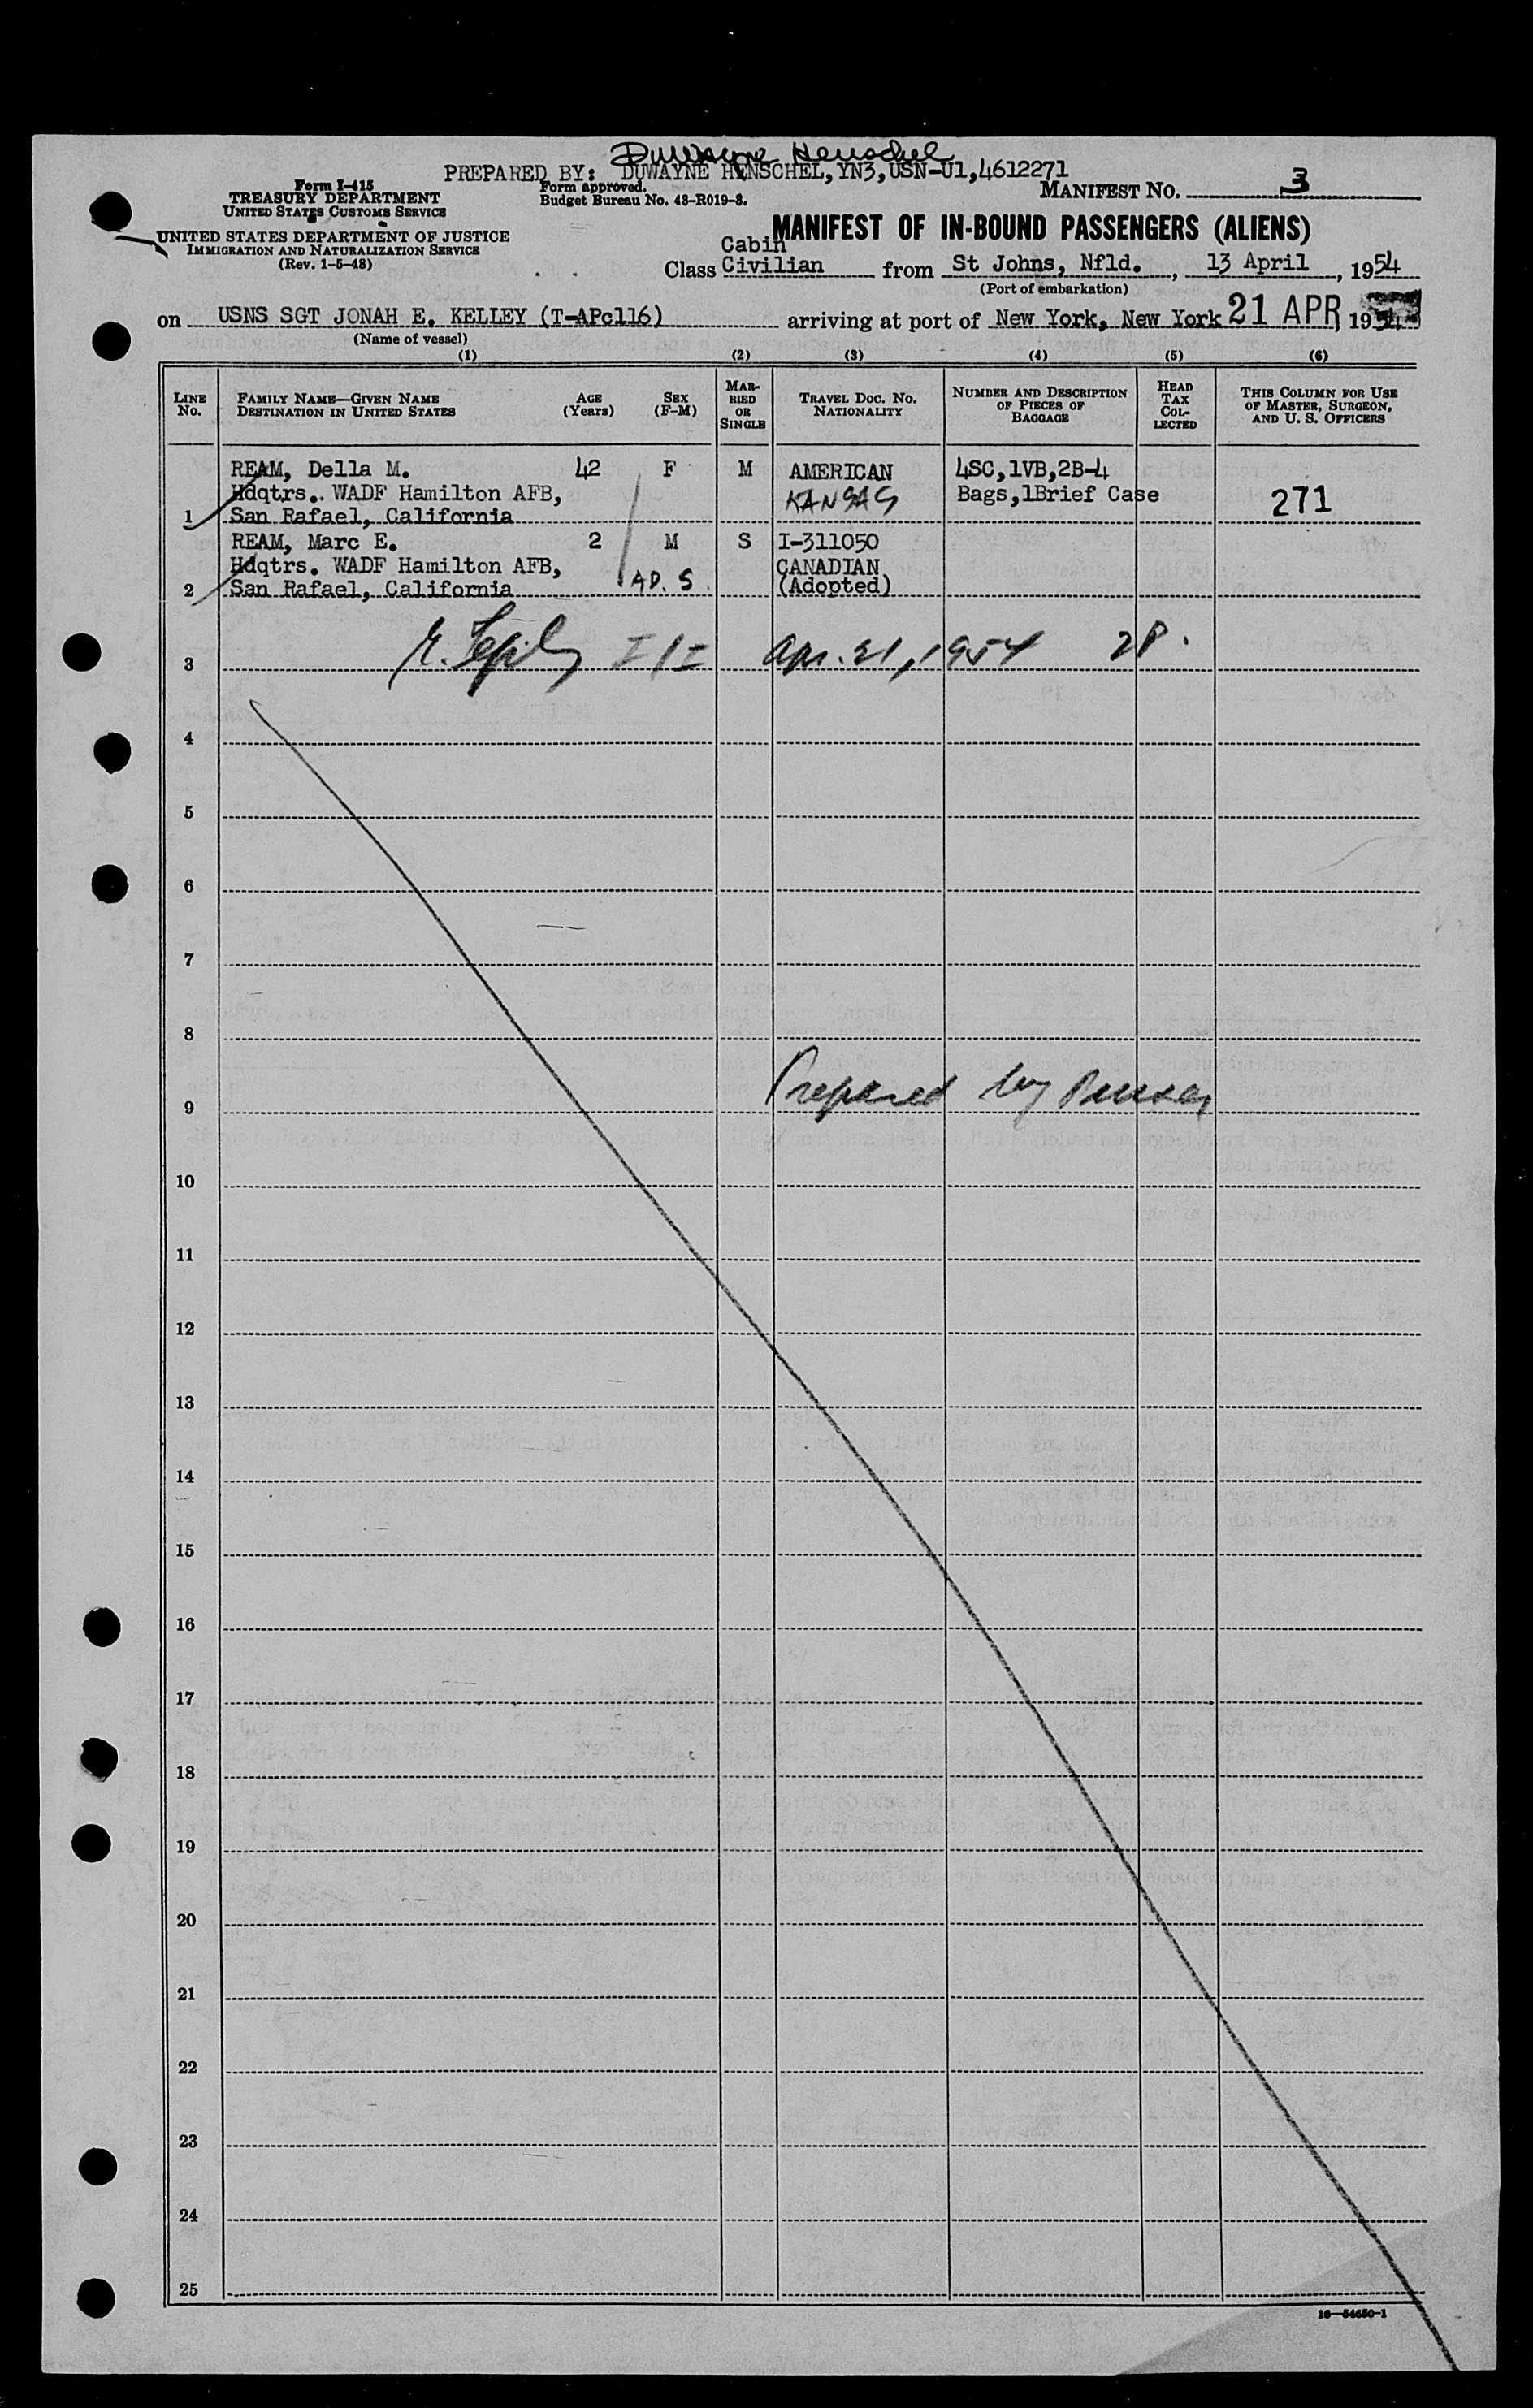 Duwayne Henschel
PREPARED BY: DUWAYNE HENSCHEL, YN3, USN-U1, 4612271
Form I-415
TREASURY DEPARTMENT
UNITED STATES CUSTOMS SERVICE
UNITED STATES DEPARTMENT OF JUSTICE
IMMIGRATION AND NATURALIZATION SERVICE
(Rev. 1-5-48)
Form approved.
Budget Bureau No. 43-R019-3.
MANIFEST NO. 3
MANIFEST OF IN-BOUND PASSENGERS (ALIENS)
Cabin
Class Civilian from St Johns, Nfld., 13 April, 1954
(Port of embarkation)
on USNS SGT JONAH E. KELLEY (T-APc116) arriving at port of New York, New York 21 APR 1954
(Name of vessel)
(1) (2) (3) (4) (5) (6)
LINE NO.
FAMILY NAME—GIVEN NAME
DESTINATION IN UNITED STATES
AGE (Years)
SEX (F-M)
MARRIED OR SINGLE
TRAVEL DOC. NO.
NATIONALITY
NUMBER AND DESCRIPTION OF PIECES OF BAGGAGE
HEAD TAX COLLECTED
THIS COLUMN FOR USE OF MASTER, SURGEON, AND U. S. OFFICERS
REAM, Della M. 42 F M AMERICAN 4SC,1VB,2B-4
Hdqtrs.. WADF Hamilton AFB, KANSAS Bags,1Brief Case 271
1 San Rafael, California
REAM, Marc E. 2 M S I-311050
Hdqtrs. WADF Hamilton AFB, CANADIAN
2 San Rafael, California AD. S. (Adopted)
3 I/I Apr. 21, 1954 28.
4
5
6
7
8
Prepared by Purser
9
10
11
12
13
14
15
16
17
18
19
20
21
22
23
24
25
16—54650-1